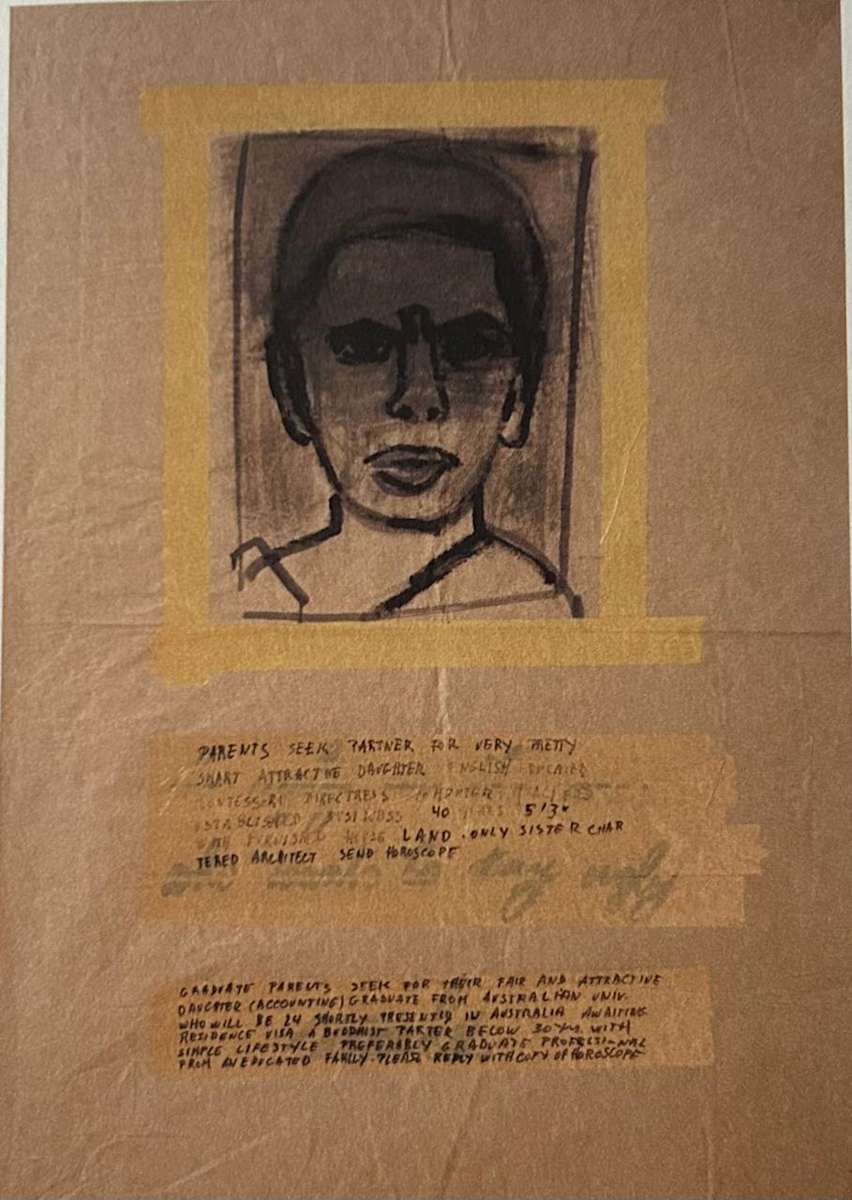 PARENTS SEEK PARTNER FOR VERY PRETTY
SMART ATTRACTIVE DAUGHTER ENGLISH EDUCATED
MONTESSORI DIRECTRESS
ESTABLISHED BUSINESS 40 YEARS 5'3"
WITH FURNISHED HOUSE LAND. ONLY SISTER CHAR
TERED ARCHITECT SEND HOROSCOPE
GRADUATE PARENTS SEEK FOR THEIR FAIR AND ATTRACTIVE
DAUGHTER (ACCOUNTING) GRADUATE FROM AUSTRALIAN UNIV.
WHO WILL BE 24 SHORTLY PRESENTLY IN AUSTRALIA AWAITING
RESIDENCE VISA A BUDDHIST PARTER BELOW 30 YRS. WITH
SIMPLE LIFESTYLE PREFERABLY GRADUATE PROFESSIONAL
FROM AN EDUCATED FAMILY. PLEASE REPLY WITH COPY OF HOROSCOPE